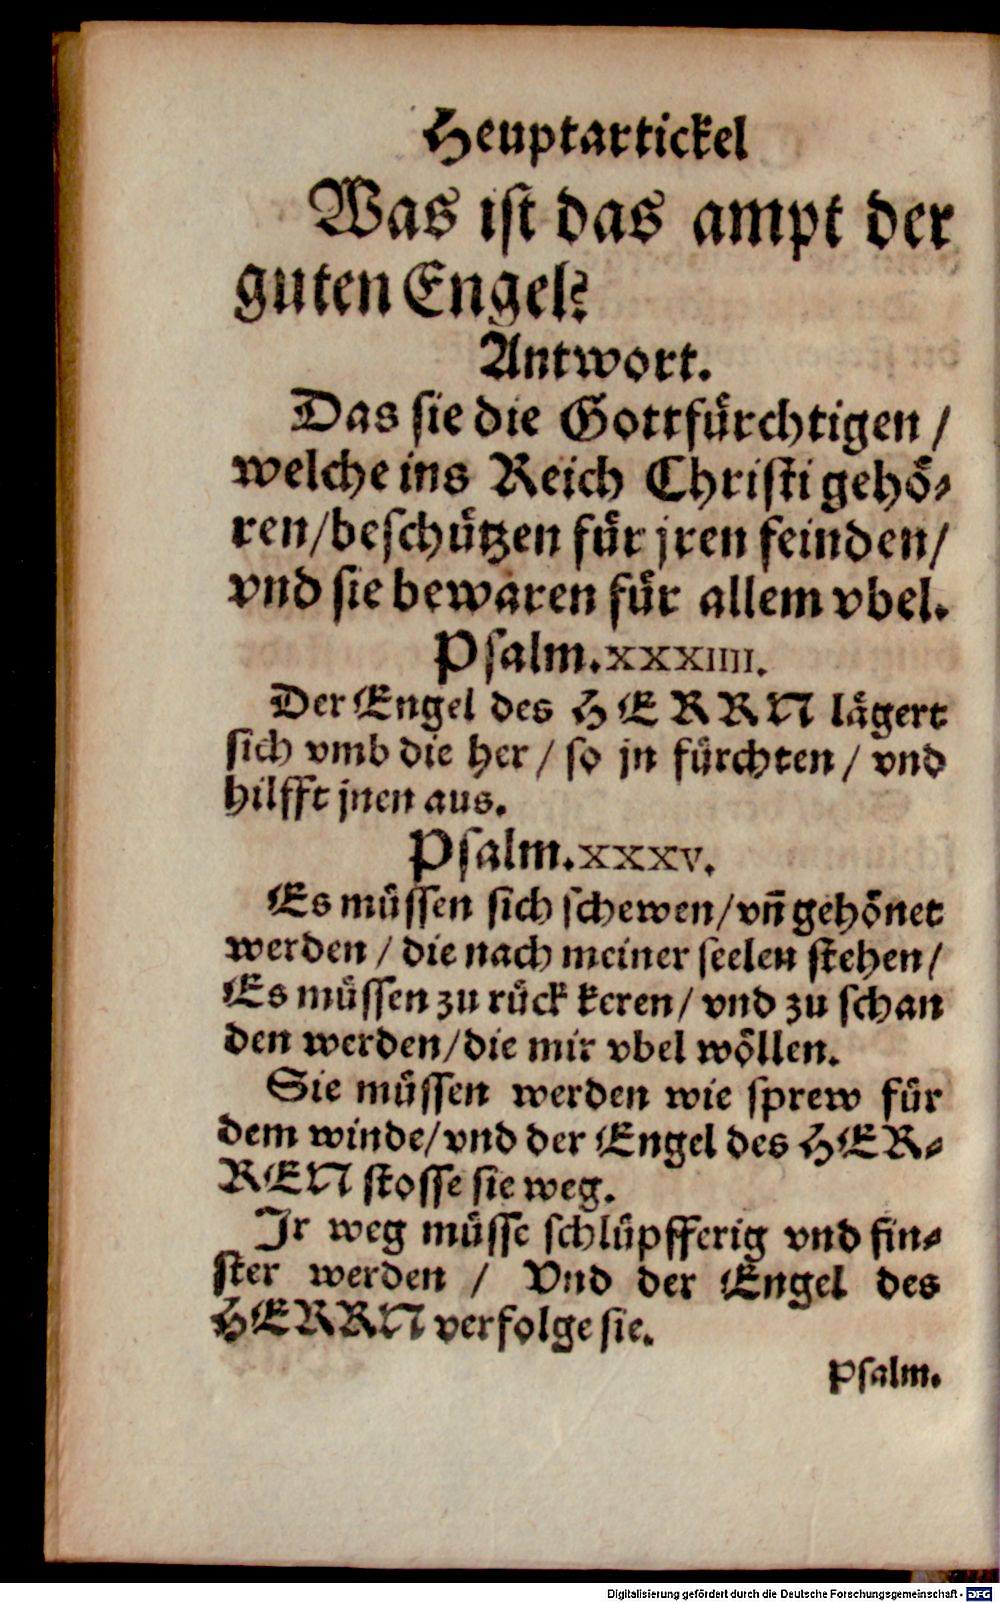 Heuptartickel
Was ist das ampt der
guten Engel?
Antwort.
Das sie die Gottfürchtigen /
welche ins Reich Christi gehö⸗
ren/beschützen für jren feinden/
vnd sie bewaren für allem vbel.
Psalm.xxxiiii.
Der Engel des HERRN lägert
sich vmb die her / so jn fürchten / vnd
hilfft jnen aus.
Psalm.xxxv.
Es müssen sich schewen/vn̄ gehönet
werden / die nach meiner seelen stehen/
Es müssen zu rück keren/ vnd zu schan
den werden/die mir vbel wöllen.
Sie müssen werden wie sprew für
dem winde/vnd der Engel des HER⸗
REN stosse sie weg.
Jr weg müsse schlüpfferig vnd fin⸗
ster werden / Vnd der Engel des
HERRN verfolge sie.
Psalm.
Digitalisierung gefördert durch die Deutsche Forschungsgemeinschaft - DFG